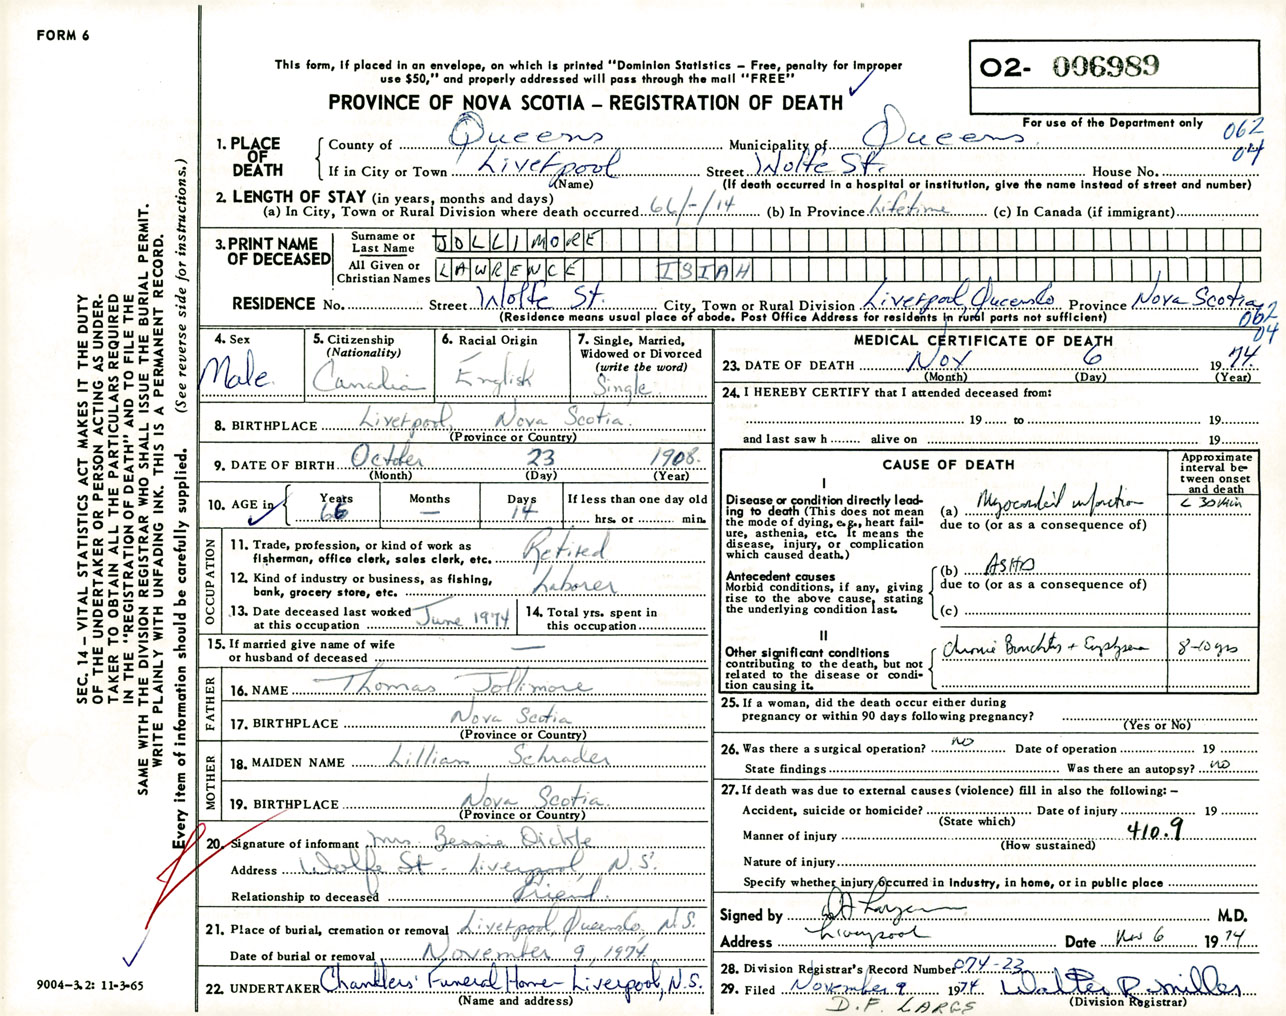 FORM 6
This form, if placed in an envelope, on which is printed "Dominion Statistics – Free, penalty for improper
use $50," and properly addressed will pass through the mail "FREE"
PROVINCE OF NOVA SCOTIA – REGISTRATION OF DEATH
O2- 006989
For use of the Department only
062
04
1. PLACE OF DEATH
County of Queens Municipality of Queens
If in City or Town Liverpool Street Wolfe St. House No.
(Name) (If death occurred in a hospital or institution, give the name instead of street and number)
2. LENGTH OF STAY (in years, months and days)
(a) In City, Town or Rural Division where death occurred 66/-/14 (b) In Province Lifetime (c) In Canada (if immigrant)
3. PRINT NAME OF DECEASED
Surname or Last Name JOLLIMORE
All Given or Christian Names LAWRENCE ISIAH
RESIDENCE No. Street Wolfe St. City, Town or Rural Division Liverpool, Queens Co Province Nova Scotia
(Residence means usual place of abode. Post Office Address for residents in rural parts not sufficient)
062
04
4. Sex
Male
5. Citizenship
(Nationality)
Canadian
6. Racial Origin
English
7. Single, Married,
Widowed or Divorced
(write the word)
Single
8. BIRTHPLACE Liverpool, Nova Scotia.
(Province or Country)
9. DATE OF BIRTH October 23 1908.
(Month) (Day) (Year)
10. AGE in
Years Months Days If less than one day old
66 — 14 hrs. or min.
OCCUPATION
11. Trade, profession, or kind of work as
fisherman, office clerk, sales clerk, etc. Retired
12. Kind of industry or business, as fishing,
bank, grocery store, etc. Laborer
13. Date deceased last worked
at this occupation June 1974
14. Total yrs. spent in
this occupation
15. If married give name of wife
or husband of deceased —
FATHER
16. NAME Thomas Jollimore
17. BIRTHPLACE Nova Scotia
(Province or Country)
MOTHER
18. MAIDEN NAME Lillian Schrader
19. BIRTHPLACE Nova Scotia.
(Province or Country)
20. Signature of informant Mrs. Bessie Dickie
Address Wolfe St. Liverpool, N.S.
Relationship to deceased friend.
21. Place of burial, cremation or removal Liverpool, Queens Co, N.S.
Date of burial or removal November 9, 1974.
22. UNDERTAKER Chandlers' Funeral Home Liverpool, N.S.
(Name and address)
MEDICAL CERTIFICATE OF DEATH
23. DATE OF DEATH Nov 6 1974.
(Month) (Day) (Year)
24. I HEREBY CERTIFY that I attended deceased from:
19 to 19
and last saw h alive on 19
CAUSE OF DEATH
Approximate
interval be-
tween onset
and death
I
Disease or condition directly lead-
ing to death (This does not mean
the mode of dying, e.g., heart fail-
ure, asthenia, etc. It means the
disease, injury, or complication
which caused death.)
(a) Myocardial infarction < 30 min
due to (or as a consequence of)
Antecedent causes
Morbid conditions, if any, giving
rise to the above cause, stating
the underlying condition last.
(b) ASHD
due to (or as a consequence of)
(c)
II
Other significant conditions
contributing to the death, but not
related to the disease or condi-
tion causing it.
Chronic Bronchitis + Emphysema 8-10 yrs
25. If a woman, did the death occur either during
pregnancy or within 90 days following pregnancy?
(Yes or No)
26. Was there a surgical operation? no Date of operation 19
State findings Was there an autopsy? no
27. If death was due to external causes (violence) fill in also the following: –
Accident, suicide or homicide? Date of injury 19
(State which)
Manner of injury 410.9
(How sustained)
Nature of injury
Specify whether injury occurred in industry, in home, or in public place
Signed by M.D.
Address Liverpool Date Nov 6 1974
28. Division Registrar's Record Number 074-23
29. Filed November 9 1974
(Division Registrar)
D.F. LARGE
SEC. 14 – VITAL STATISTICS ACT MAKES IT THE DUTY
OF THE UNDERTAKER OR PERSON ACTING AS UNDER-
TAKER TO OBTAIN ALL THE PARTICULARS REQUIRED
IN THE "REGISTRATION OF DEATH" AND TO FILE THE
SAME WITH THE DIVISION REGISTRAR WHO SHALL ISSUE THE BURIAL PERMIT.
WRITE PLAINLY WITH UNFADING INK. THIS IS A PERMANENT RECORD.
Every item of information should be carefully supplied. (See reverse side for instructions.)
9004-3.2: 11-3-65